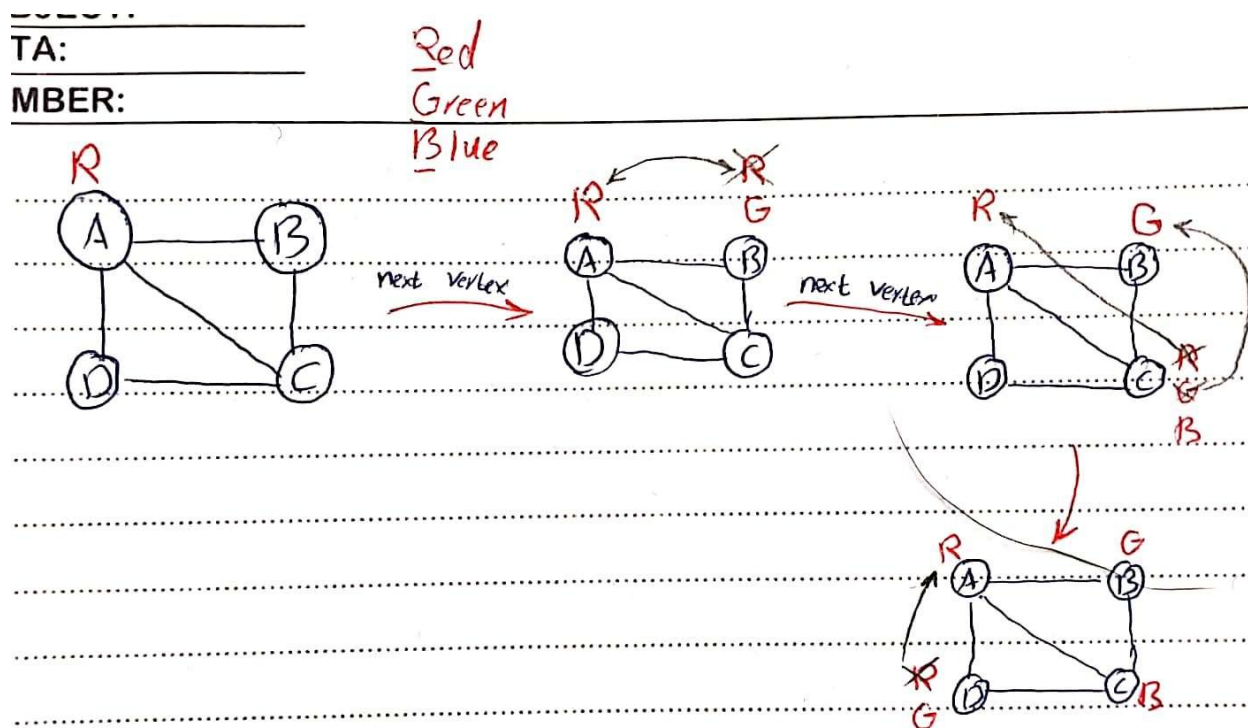 TA:
MBER:
Red
Green
Blue
R
A
B
D
C
next vertex
R
R
G
A
B
D
C
next vertex
R
G
A
B
D
C
R
G
B
R
G
A
B
D
C
R
G
B